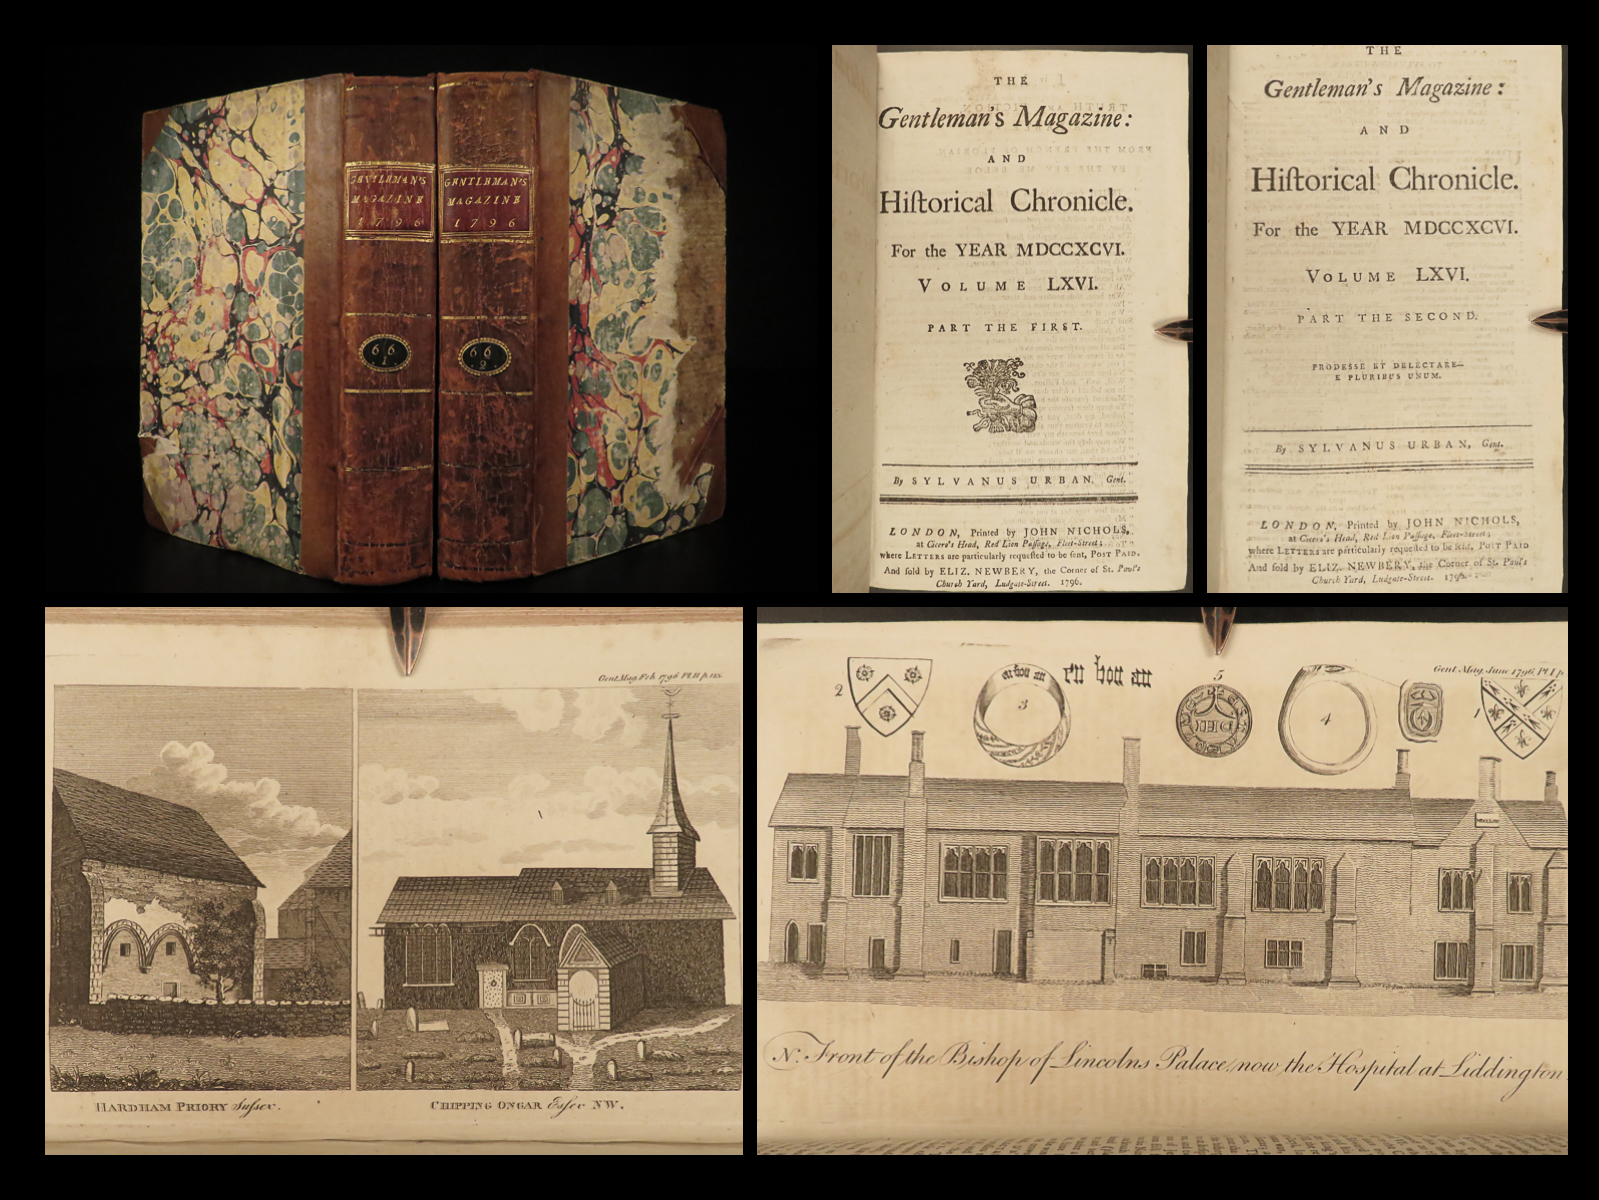 GENTLEMAN'S
MAGAZINE
1796
66
1
GENTLEMAN'S
MAGAZINE
1796
66
2
THE
Gentleman's Magazine:
AND
Hiſtorical Chronicle.
For the YEAR MDCCXCVI.
VOLUME LXVI.
PART THE FIRST.
By SYLVANUS URBAN, Gent.
LONDON, Printed by JOHN NICHOLS,
at Cicero's Head, Red Lion Paſſage, Fleet-Street;
where LETTERS are particularly requeſted to be ſent, POST PAID.
And ſold by ELIZ. NEWBERY, the Corner of St. Paul's
Church Yard, Ludgate-Street. 1796.
THE
Gentleman's Magazine:
AND
Hiſtorical Chronicle.
For the YEAR MDCCXCVI.
VOLUME LXVI.
PART THE SECOND.
PRODESSE ET DELECTARE—
E PLURIBUS UNUM.
By SYLVANUS URBAN, Gent.
LONDON, Printed by JOHN NICHOLS,
at Cicero's Head, Red Lion Paſſage, Fleet-Street;
where LETTERS are particularly requeſted to be ſent, POST PAID
And ſold by ELIZ. NEWBERY, the Corner of St. Paul's
Church Yard, Ludgate-Street. 1796.
Gent. Mag. Feb. 1796. Pl. II. p.
HARDHAM PRIORY Suſsex.
CHIPPING ONGAR Eſsex NW.
Gent. Mag. June 1796. Pl. I. p.
2
en bon an
en bon an
3
5
4
1
N. Front of the Bishop of Lincolns Palace, now the Hospital at Liddington